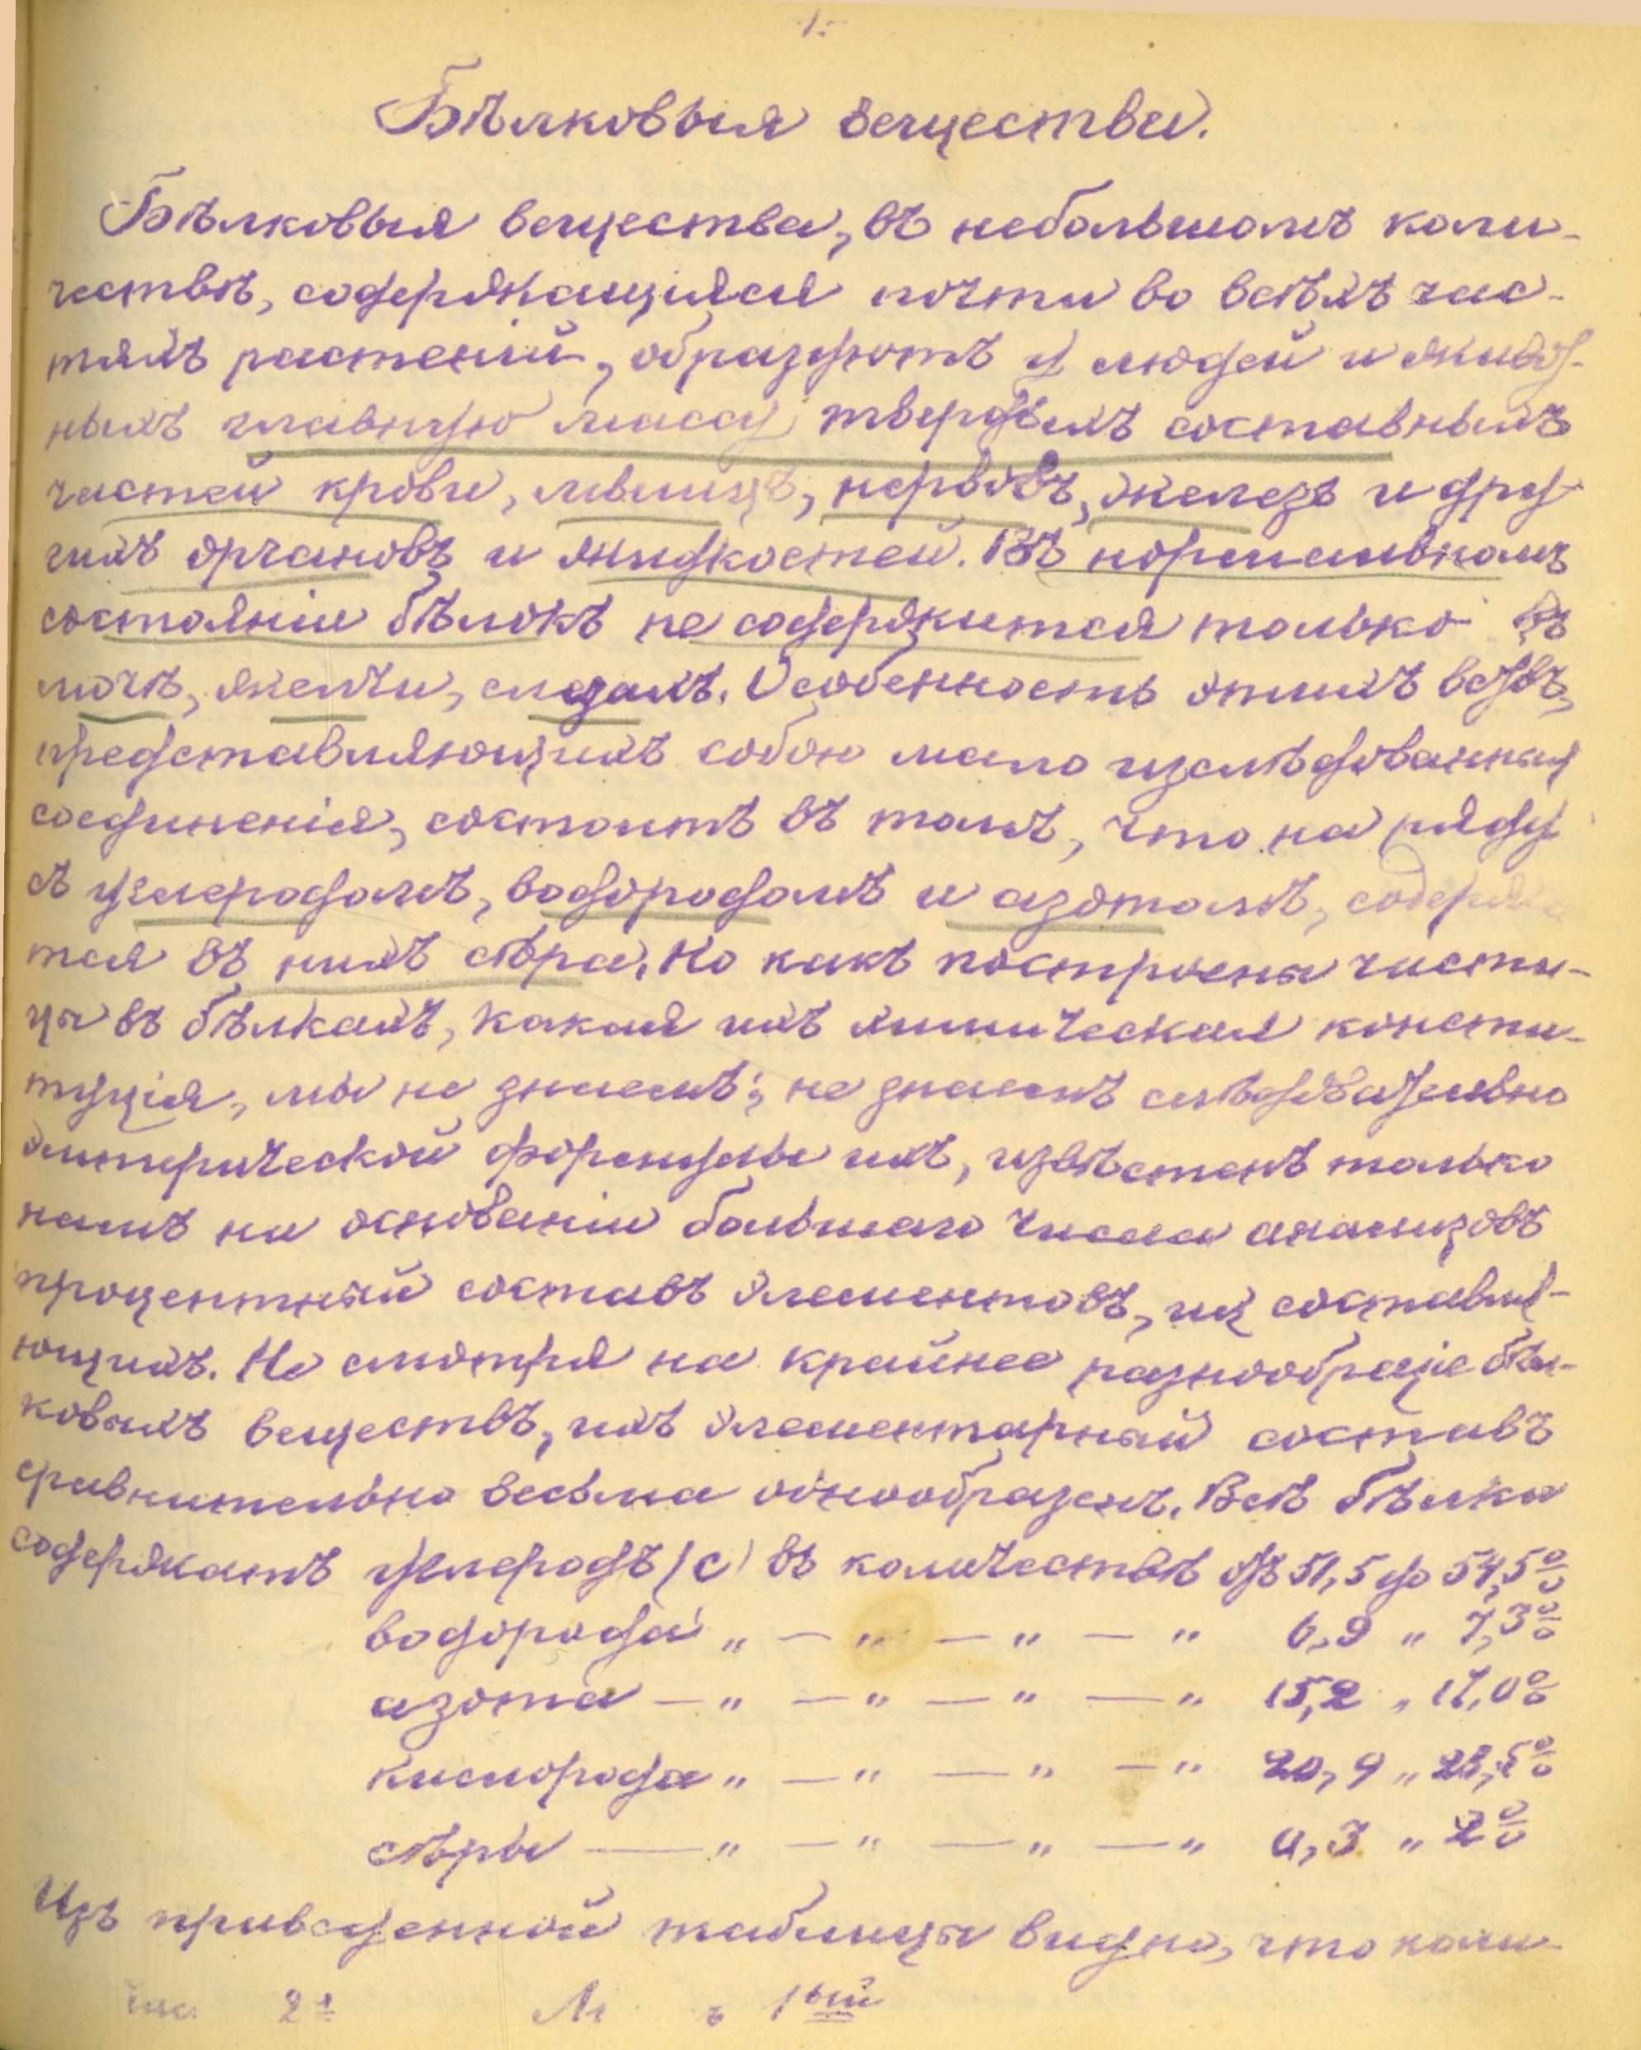 1.
Бѣлковыя вещества.
Бѣлковыя вещества, въ небольшомъ коли-
чествѣ, содержащіяся почти во всѣхъ час-
тяхъ растеній, образуютъ у людей и живот-
ныхъ главную массу твердыхъ составныхъ
частей крови, мышцъ, нервовъ, железъ и дру-
гихъ органовъ и жидкостей. Въ нормальномъ
состояніи бѣлокъ не содержится только въ
мочѣ, желчи, слезахъ. Особенность этихъ
представляющихъ собою мало изслѣдованныя
соединенія, состоитъ въ томъ, что на ряду
съ углеродомъ, водородомъ и азотомъ, содержи
тся въ нихъ сѣра. Но какъ построены части-
цы въ бѣлкахъ, какая ихъ химическая консти-
туція, мы не знаемъ; не знаемъ слѣдовательно
эмпирической формулы ихъ, извѣстенъ только
намъ на основаніи большаго числа анализовъ
процентный составъ элементовъ, их составля-
ющихъ. Не смотря на крайнее разнообразіе бѣл-
ковыхъ веществъ, ихъ элементарный составъ
сравнительно весьма однообразенъ. Всѣ бѣлки
содержатъ углеродъ (С) въ количествѣ отъ 51,5 до 54,5%
водорода „ — „ — „ — „ 6,9 „ 7,3%
азота — „ — „ — „ — „ 15,2 „ 17,0%
кислорода „ — „ — „ — „ 20,9 „ %
сѣры — „ — „ — „ — „ 0,3 „ 2%
Изъ приведенной таблицы видно, что коли-
2 1ый